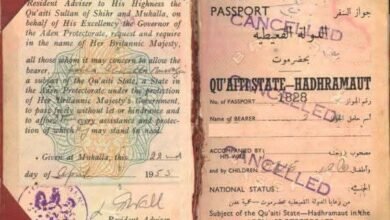 Resident Adviser to His Highness the
Qu'aiti Sultan of Shihr and Mukalla, for
His Excellency the Governor of
the Aden Protectorate, request and require
in the name of Her Britannic Majesty,
all those whom it may concern to allow the
bearer,
of the Qu'aiti State, a State in
the Aden Protectorate, under the protection
of Her Britannic Majesty's Government,
to pass freely without let or hindrance and
to afford every assistance and protection
of which may stand in need.
Given at Mukalla, this 22nd
day of April 1953
Resident Adviser
PASSPORT جواز السفر
CANCELLED
الدولة القعيطية
بحضرموت
QU'AITI STATE—HADHRAMAUT
No. of PASSPORT 1828 رقم الجواز
Name of BEARER اسم حامل الجواز
CANCELLED
ACCOMPANIED BY
HIS WIFE
and by CHILDREN
CANCELLED
NATIONAL STATUS:
Subject of the Qu'aiti State of Hadhramaut